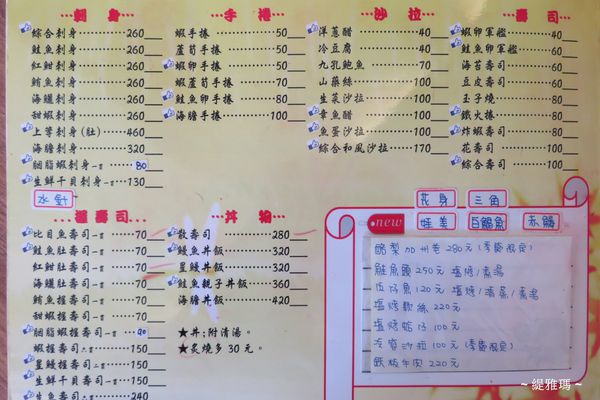 刺身
綜合刺身 260
鮭魚刺身 260
紅魽刺身 260
鮪魚刺身 260
海鱺刺身 260
甜蝦刺身 260
上等刺身(肚) 460
海膽刺身 320
胭脂蝦刺身一貫 80
生鮮干貝刺身一貫 130
水針
手捲
蝦手捲 50
蘆筍手捲 50
蝦卵手捲 50
蝦蘆筍手捲 80
鮭魚卵手捲 80
海膽手捲 100
沙拉
洋蔥醋 40
冷豆腐 40
九孔鮑魚 70
山藥絲 100
生菜沙拉 80
章魚醋 100
魚蛋沙拉 100
綜合和風沙拉 170
壽司
蝦卵軍艦 40
鮭魚卵軍艦 60
海苔壽司 60
豆皮壽司 60
玉子燒 60
鐵火捲 80
炸蝦壽司 80
花壽司 100
綜合壽司 100
握壽司
比目魚壽司一貫 70
鮭魚肚壽司一貫 70
紅魽肚壽司一貫 70
海鱺壽司一貫 70
鮪魚握壽司一貫 70
甜蝦握壽司一貫 70
胭脂蝦握壽司一貫 90
蝦握壽司六貫 150
星鰻握壽司二貫 150
生鮮干貝壽司一貫 150
生魚壽司六貫 240
丼物
散壽司 280
鰻魚丼飯 320
星鰻丼飯 320
鮭魚親子丼飯 360
海膽丼飯 420
★丼;附清湯。
★炙燒多30元。
花身 三角
new 蛙美 白鯧魚 赤鯮
酪梨加州卷 280元(季節限定)
鮭魚頭 250元 塩烤/煮湯
塩烤軟絲 220元
塩烤蛤仔 100元
冷筍沙拉 100元(季節限定)
鐵板牛肉 220元
~ 緹雅瑪 ~